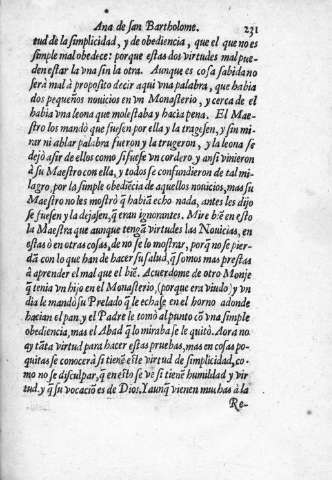 Ana de san Bartholome. 231
tud de la simplicidad, y de obediencia, que el que no es
simple mal obedece: porque estas dos virtudes mal pue-
den estar la vna sin la otra. Aunque es cosa sabida no
serà mal à proposito decir aqui vna palabra, que habia
dos pequeños nouicios en vn Monasterio, y cerca de el
habia vna leona que molestaba y hacia pena. El Mae-
stro los mandò que fuesen por ella y la tragesen, y sin mi-
rar ni ablar palabra fueron y la trugeron, y la leona se
dejò asir de ellos como si fuese vn cordero y ansi vinieron
à su Maestro con ella, y todos se confundieron de tal mi-
lagro, por la simple obediẽcia de aquellos nouicios, mas su
Maestro no les mostrò q̃ habiã echo nada, antes les dijo
se fuesen y la dejasen, q̃ erau ignorantes. Mire biẽ en esto
la Maestra que aunque tengã virtudes las Nouicias, en
estas ò en otras cosas, de no se lo mostrar, porq̃ no se pier-
dã con lo que han de hacer su salud, q̃ somos mas prestas
à aprender el mal que el biẽ. Acuerdome de otro Monje
q̃ tenia vn hijo en el Monasterio, (porque era viudo) y vn
dia le mandò su Prelado q̃ le echase en el horno adonde
hacian el pan, y el Padre le tomò al punto cõ vna simple
obediencia, mas el Abad q̃ lo miraba se le quitò. Aora no
ay tãta virtud para hacer estas pruebas, mas en cosas po-
quitas se conocerà si tienẽ este virtud de simplicidad, co-
mo no se disculpar, q̃ en esto se ve si tienẽ humildad y vir
tud, y q̃ su vocaciõ es de Dios, Y aunq̃ vienen muchas à la
Re-